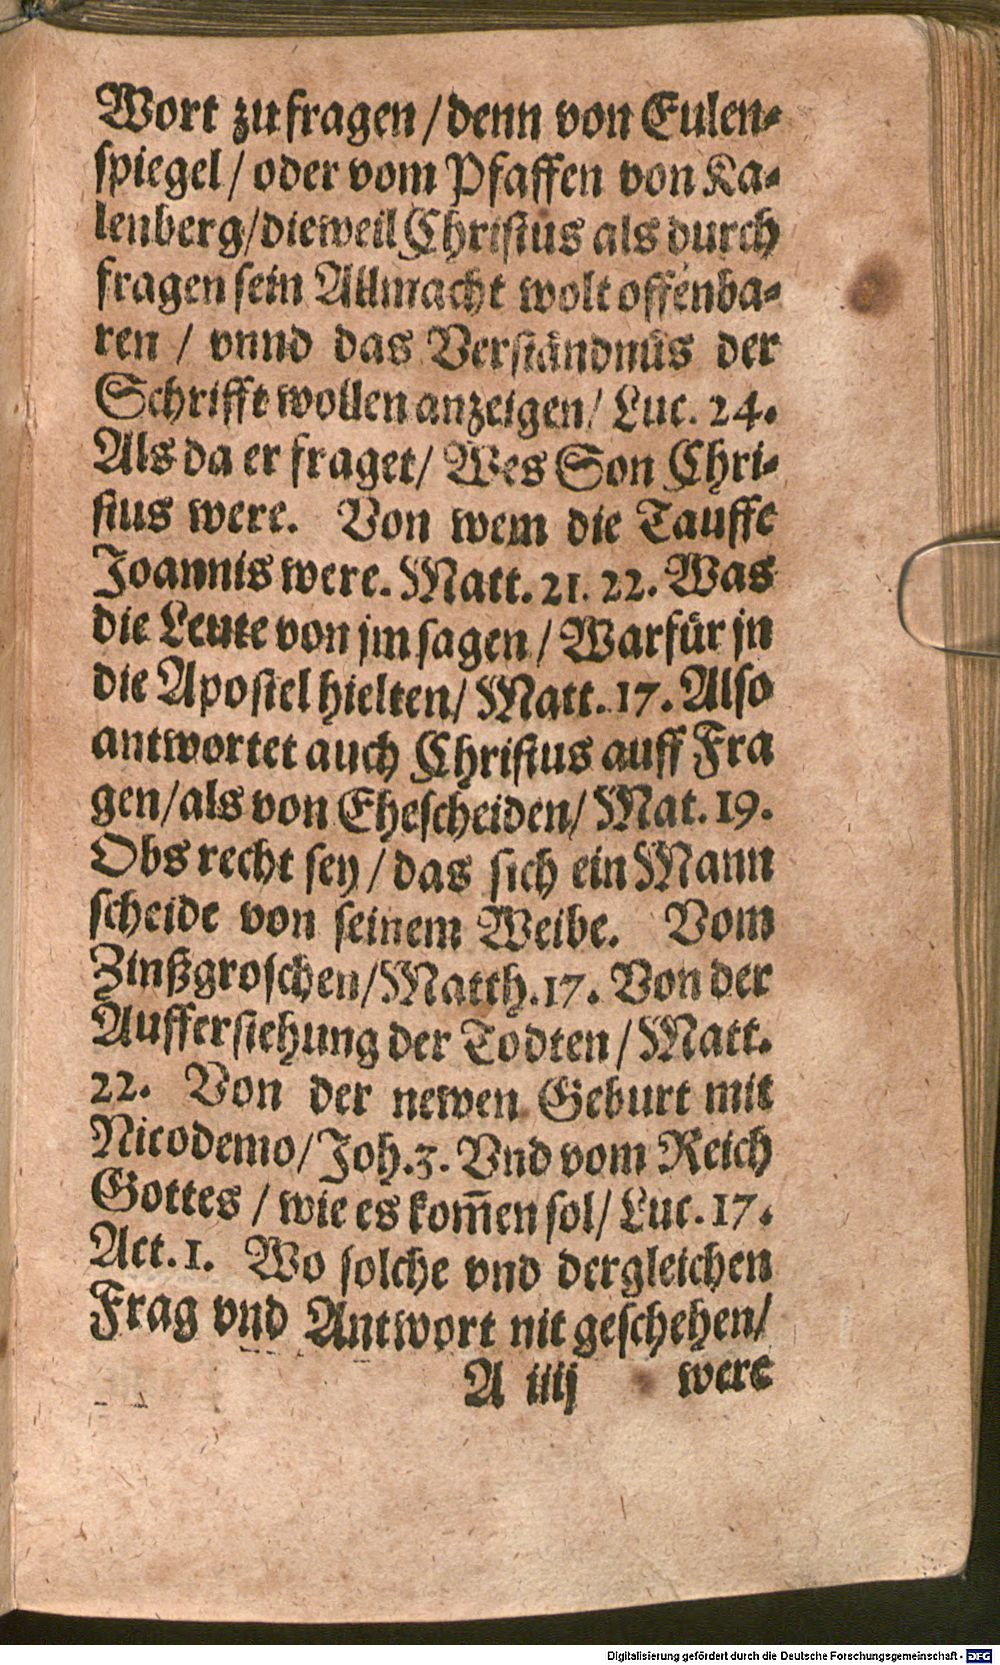 Wort zu fragen / denn von Eulen-
spiegel / oder vom Pfaffen von Ka-
lenberg / dieweil Christus als durch
fragen sein Allmacht wolt offenba-
ren / vnnd das Verständnüs der
Schrifft wollen anzeigen / Luc. 24.
Als da er fraget / Wes Son Chri-
stus were. Von wem die Tauffe
Joannis were. Matt. 21. 22. Was
die Leute von jm sagen / Warfür jn
die Apostel hielten / Matt. 17. Also
antwortet auch Christus auff Fra
gen / als von Ehescheiden / Mat. 19.
Obs recht sey / das sich ein Mann
scheide von seinem Weibe. Vom
Zinßgroschen / Matth. 17. Von der
Aufferstehung der Todten / Matt.
22. Von der newen Geburt mit
Nicodemo / Joh. 3. Vnd vom Reich
Gottes / wie es kom̃en sol / Luc. 17.
Act. 1. Wo solche vnd dergleichen
Frag vnd Antwort nit geschehen /
A iiij were
Digitalisierung gefördert durch die Deutsche Forschungsgemeinschaft - DFG